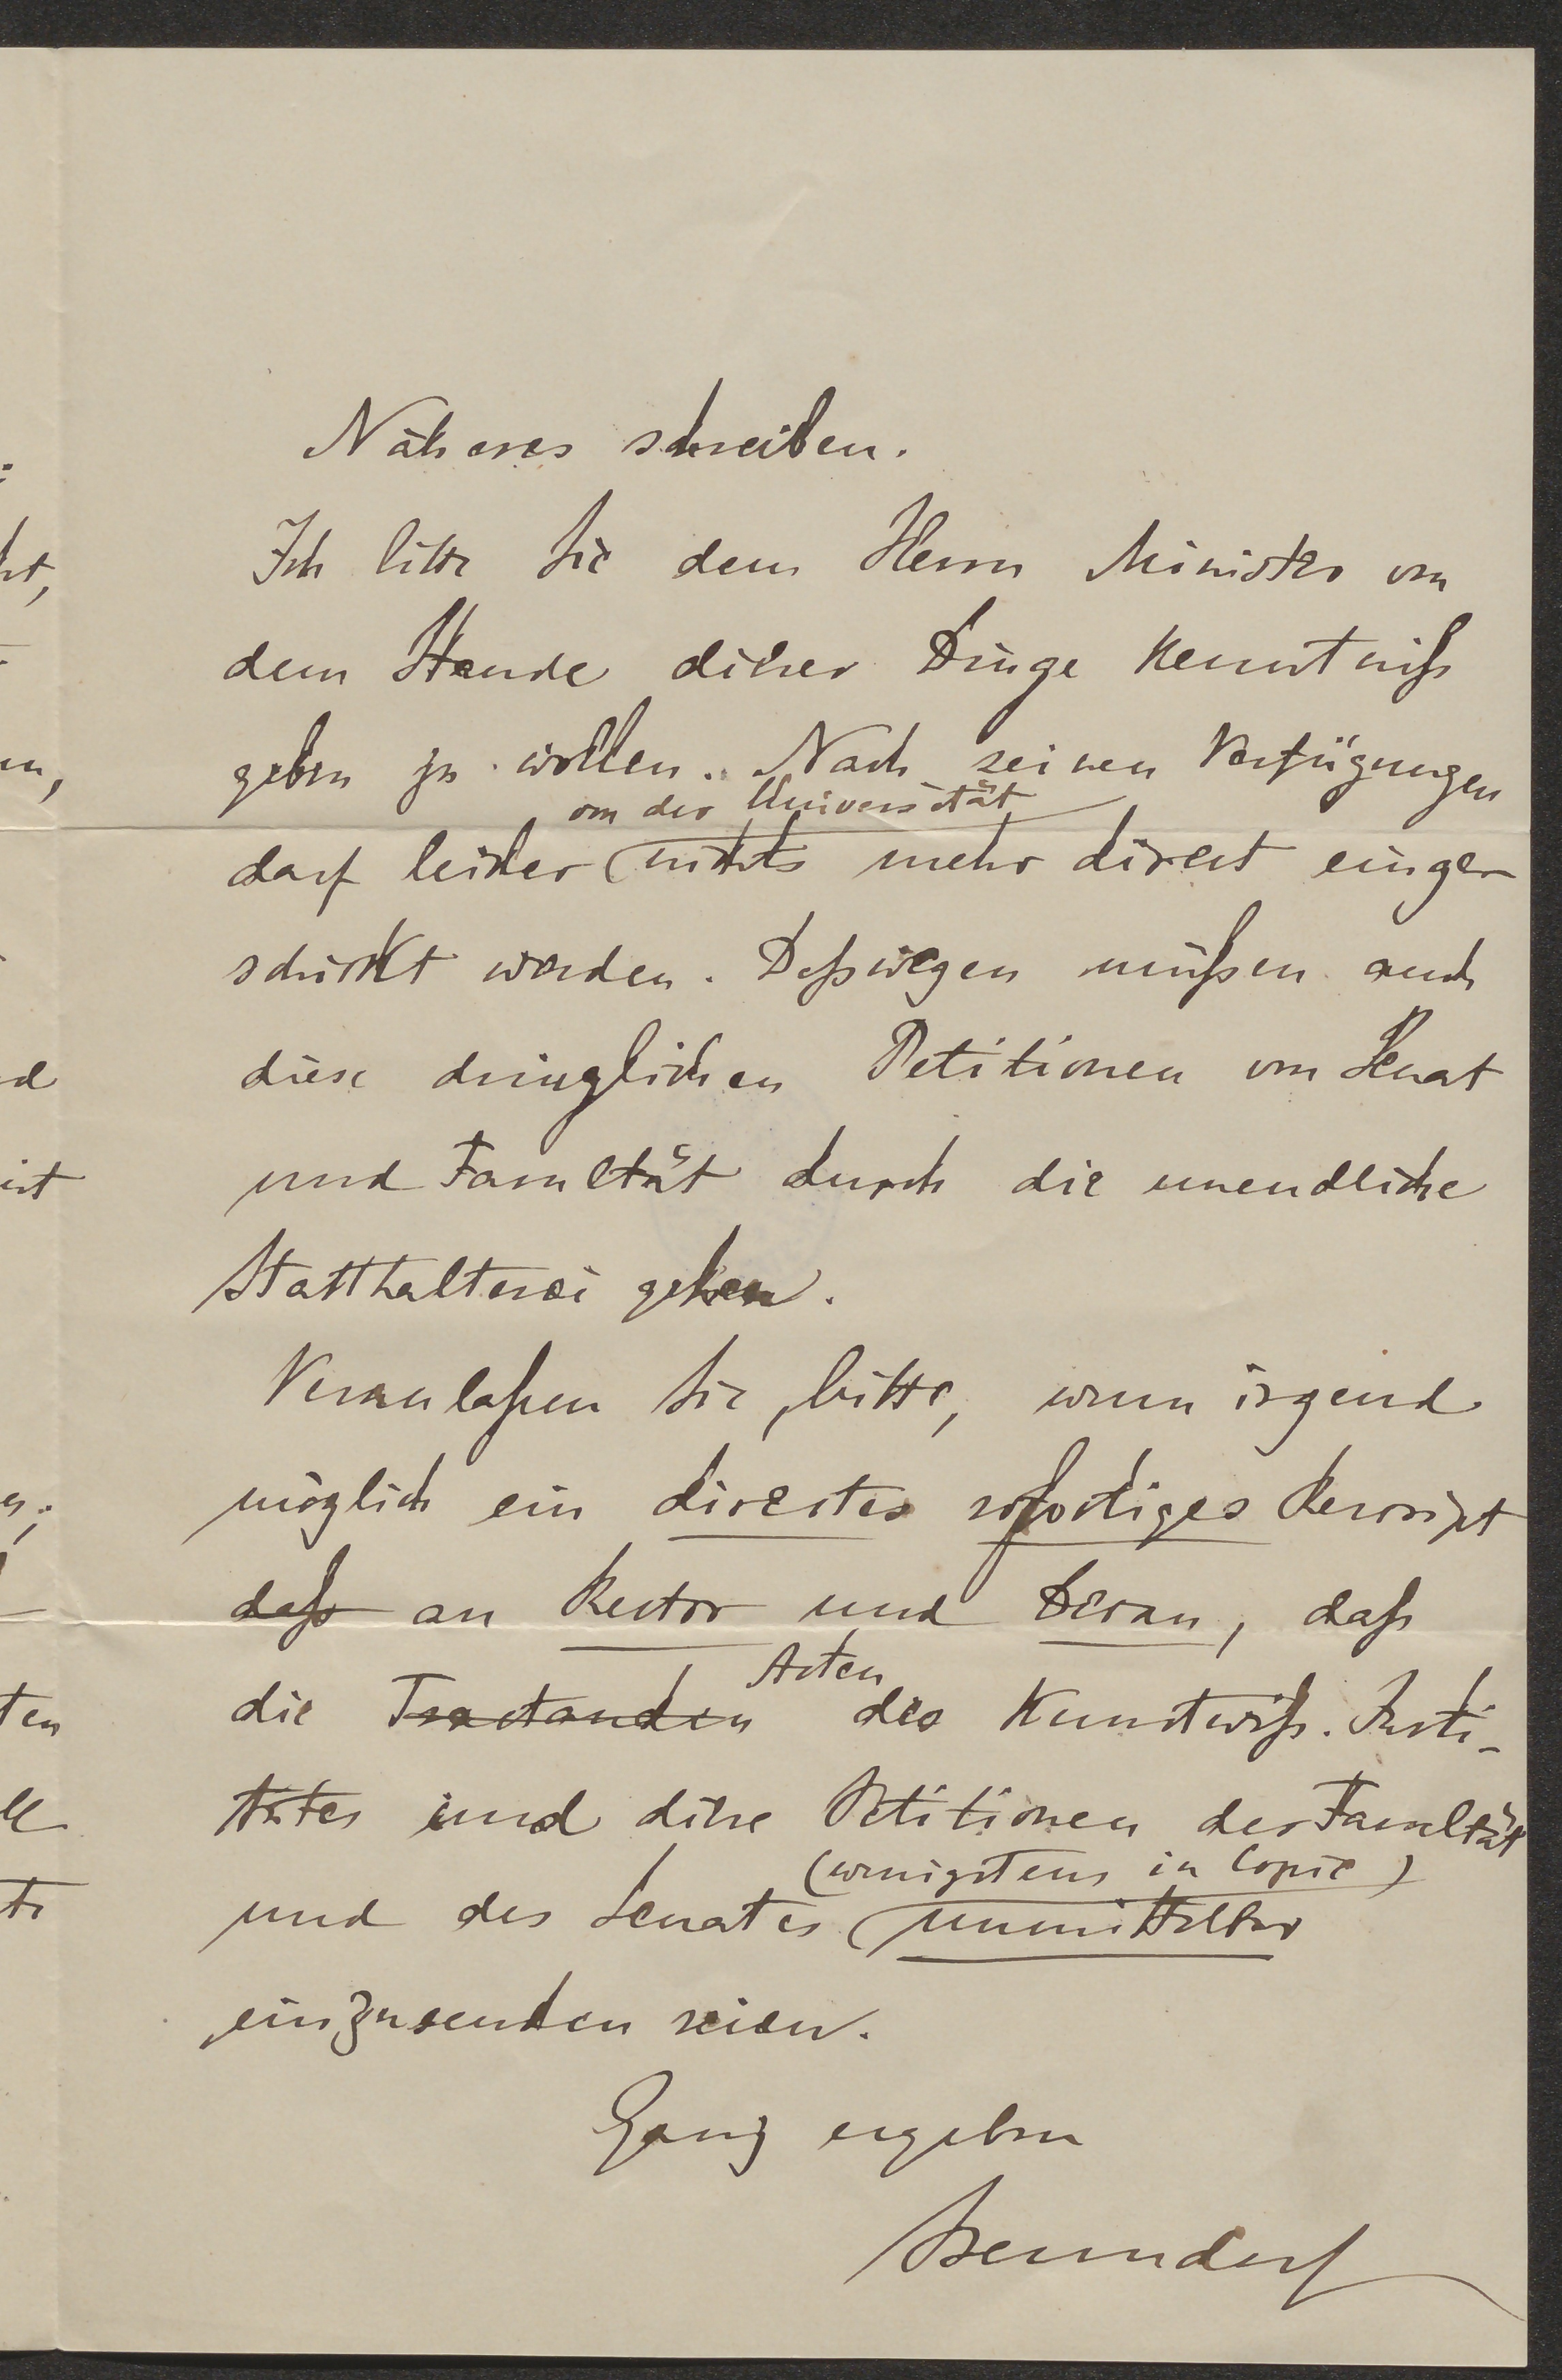 Näheres schreiben.
Ich bitte Sie dem Herrn Minister von
dem Stande dieser Dinge Kenntniß
geben zu wollen. Nach seinen Verfügungen
von der Universität
darf leider nichts mehr direct einge-
schickt werden. Deßwegen müßen auch
diese dringlichen Petitionen von Senat
und Facultät durch die unendliche
Statthalterei gehen.
Veranlaßen Sie, bitte, wenn irgend
möglich ein directes sofortiges Rescript
daß an Rector und Decan, daß
Acten
die Tractanden des Kunstwiß. Insti-
tutes und diese Petitionen der Facultät
(wenigstens in Copie)
und des Senates unmittelbar
einzusenden seien.
Ganz ergeben
Benndorf